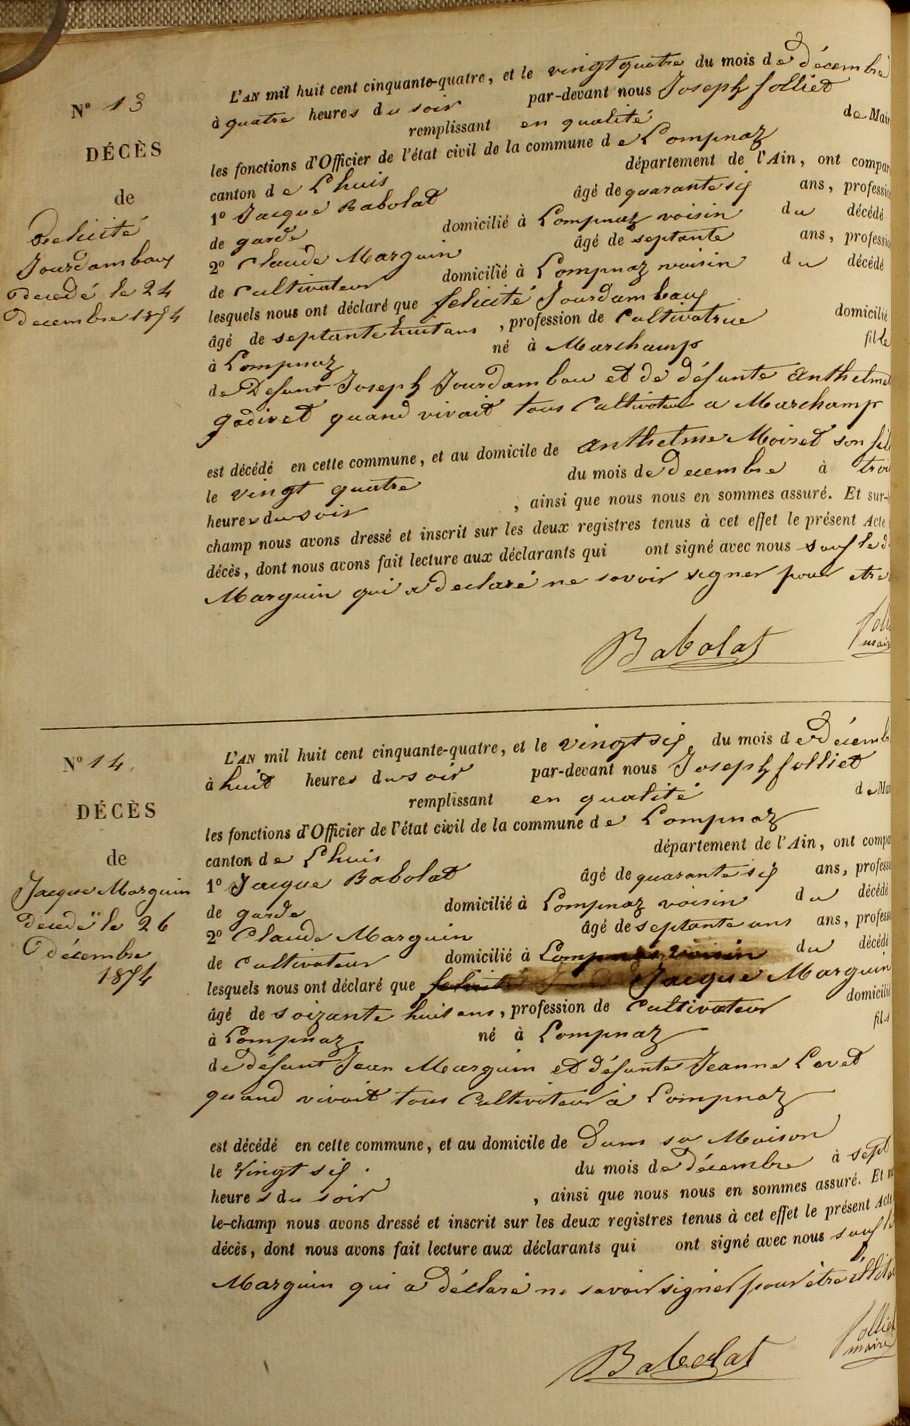 N° 13
DÉCÈS
de
Félicité
Jourdambaux
Décedé le 24
Decembre 1854
L'AN mil huit cent cinquante-quatre, et le vingt quatre du mois de décembre
à quatre heures du soir par-devant nous Joseph folliet
remplissant en qualité de Mair
les fonctions d'Officier de l'état civil de la commune de Lompnaz
canton de Lhuis département de l'Ain, ont compar
1° Jacque Babolat âgé de quarante six ans, professio
de garde domicilié à Lompnaz voisin du décédé
2° Claude Marguin âgé de septante ans, professio
de Cultivateur domicilié à Lompnaz voisin du décédé
lesquels nous ont déclaré que félicité Jourdambaux
âgé de septante huit ans, profession de Cultivatrice domicilié
à Lompnaz né à Marchamp fille
de Defunt Joseph Jourdambau et de défunte Anthelme
godiret quand vivait tous Cultivateur a Marchamp
est décédé en cette commune, et au domicile de Anthelme Moiret son fil
le vingt quatre du mois de Decembre à troi
heures du soir, ainsi que nous nous en sommes assuré. Et sur-
champ nous avons dressé et inscrit sur les deux registres tenus à cet effet le présent Acte
décès, dont nous avons fait lecture aux déclarants qui ont signé avec nous sauf le d
Marguin qui a declaré ne savoir signer pour etre
Babolat foll
maire
N° 14.
DÉCÈS
de
Jacque Marguin
Decedé le 26
décembre
1854
L'AN mil huit cent cinquante-quatre, et le vingt six du mois de Décemb
à huit heures du soir par-devant nous Joseph folliet
remplissant en qualité de Mai
les fonctions d'Officier de l'état civil de la commune de Lompnaz
canton de Lhuis département de l'Ain, ont compa
1° Jacque Babolat âgé de quarante six ans, profess
de garde domicilié à Lompnaz voisin du décédé
2° Claude Marguin âgé de septante ans ans, profess
de Cultivateur domicilié à Lompnaz voisin du décédé
lesquels nous ont déclaré que félicité Jacque Marguin
âgé de soizante huit ans, profession de Cultivateur domicilié
à Lompnaz né à Lompnaz fils
de defunt Jean Marguin et défunte Jeanne Cavet
quand vivait tous Cultivateur à Lompnaz
est décédé en cette commune, et au domicile de Dans sa Maison
le Vingt six. du mois de Décembre à sept
heures du soir, ainsi que nous nous en sommes assuré. Et
le-champ nous avons dressé et inscrit sur les deux registres tenus à cet effet le présent Acte
décès, dont nous avons fait lecture aux déclarants qui ont signé avec nous sauf le
Marguin qui a déclaré ne savoir signer pour être illitt
Babolat folliet
maire